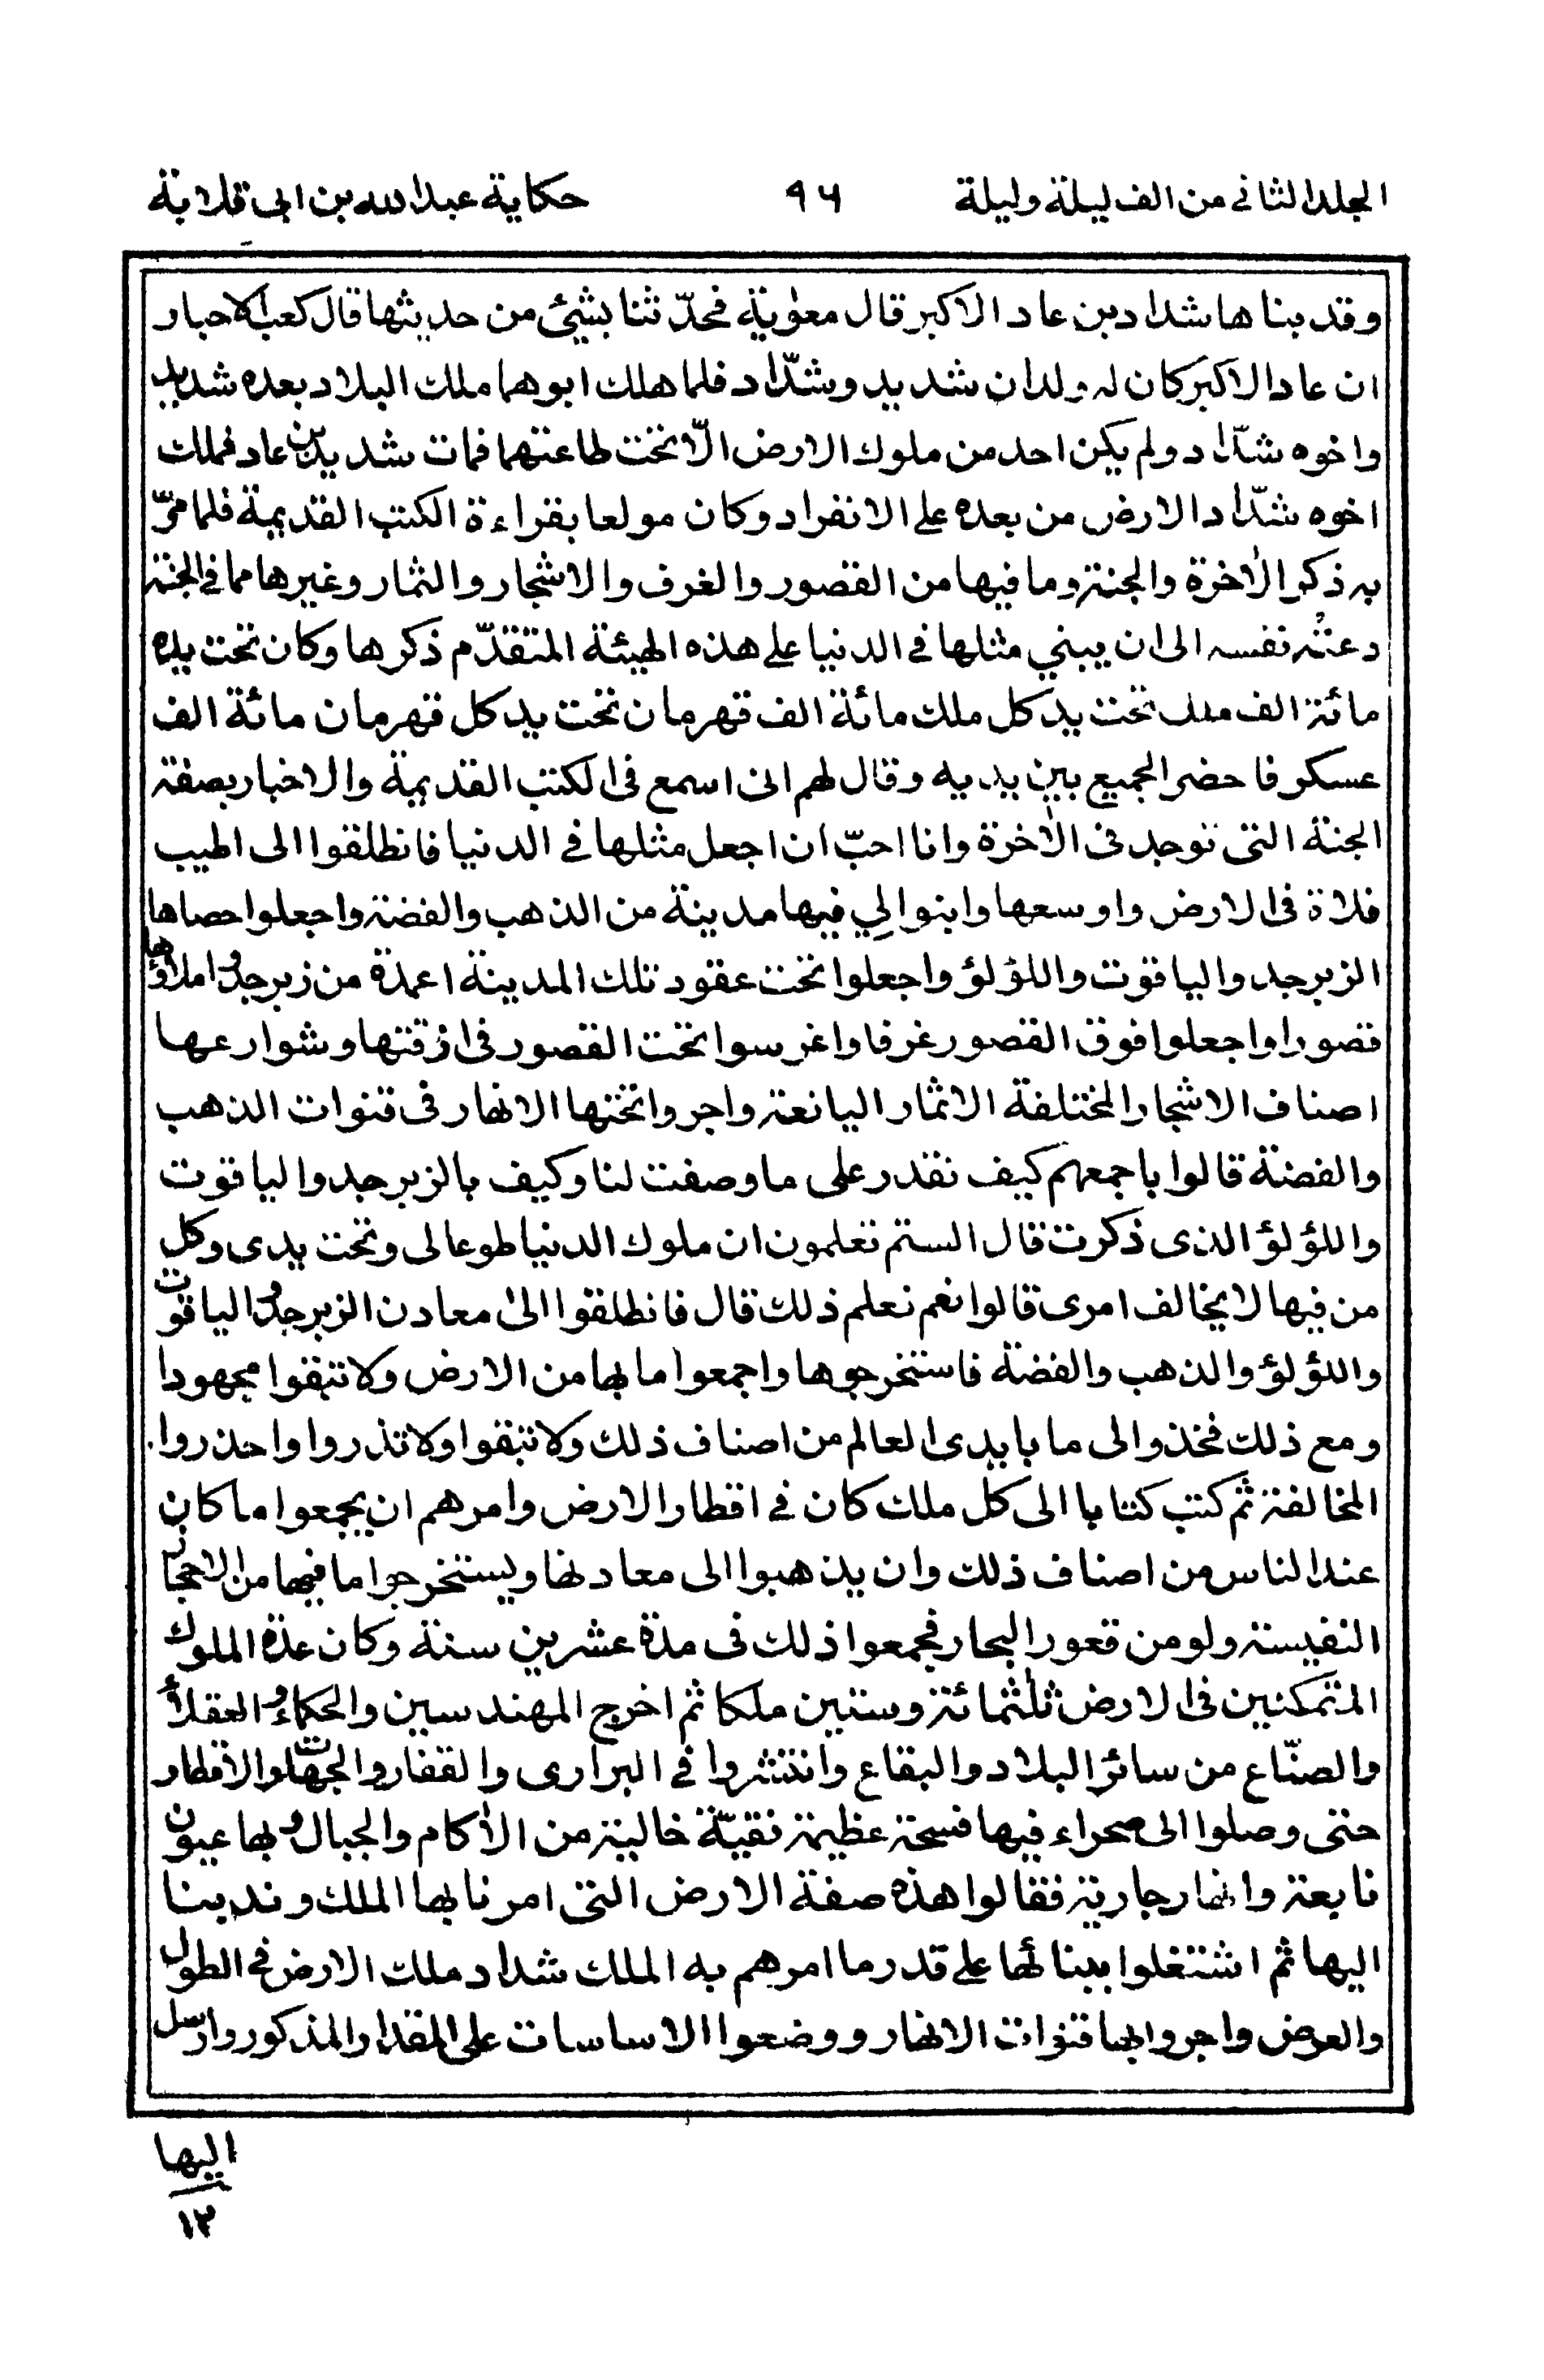 الجلد الثاني من الف ليلة وليلة ٩٦ حكاية عبد الله بن ابى قلابة
وقد بناها شداد بن عاد الاكبر قال معوٰية فحدّثنا بشيئ من حديثها قال كعب الاحبار
ان عاد الاكبر كان له ولدان شديد وشدّاد فلما هلك ابوهما ملك البلاد بعده شديد
واخوه شدّاد ولم يكن احد من ملوك الارض الّا تحت طاعتهما فمات شديد بن عاد فملك
اخوه شدّاد الارض من بعده على الانفراد وكان مولعا بقراءة الكتب القديمة فلما مرّ
به ذكر الاٰخرة والجنة وما فيها من القصور والغرف والاشجار والثمار وغيرها مما في الجنة
دعتْه نفسه الى ان يبني مثلها في الدنيا على هذه الهيئة المتقدّم ذكرها وكان تحت يده
مائة الف ملك تحت يد كل ملك مائة الف قهرمان تحت يد كل قهرمان مائة الف
عسكر فاحضر الجميع بين يديه وقال لهم انى اسمع فى الكتب القديمة والاخبار بصفة
الجنة التى توجد فى الاٰخرة وانا احبّ ان اجعل مثلها في الدنيا فانطلقوا الى اطيب
فلاة فى الارض واوسعها وابنوا لِي فيها مدينة من الذهب والفضة واجعلوا حصاها
الزبرجد والياقوت واللؤلؤ واجعلوا تحت عقود تلك المدينة اعمدة من زبرجد واملاؤها
قصورا واجعلوا فوق القصور غرفا واغرسوا تحت القصور فى ازقتها وشوارعها
اصناف الاشجار المختلفة الاثمار اليانعة واجروا تحتها الانهار فى قنوات الذهب
والفضة قالوا باجمعهم كيف نقدر على ما وصفت لنا وكيف بالزبرجد والياقوت
واللؤلؤ الذى ذكرت قال الستم تعلمون ان ملوك الدنيا طوعا لى وتحت يدى وكل
من فيها لا يخالف امرى قالوا نعم نعلم ذلك قال فانطلقوا الىٰ معادن الزبرجد والياقوت
واللؤلؤ والذهب والفضة فاستخرجوها واجمعوا ما بها من الارض ولا تبقوا مجهودا
ومع ذلك فخذوا لى ما بايدى العالم من اصناف ذلك ولا تبقوا ولا تذروا واحذروا
المخالفة ثم كتب كتابا الى كل ملك كان في اقطار الارض وامرهم ان يجمعوا ما كان
عند الناس من اصناف ذلك وان يذهبوا الى معادنها ويستخرجوا ما فيها من الاحجار
النفيسة ولو من قعور البحار فجمعوا ذلك فى مدة عشرين سنة وكان عدة الملوك
المتمكنين فى الارض ثلٰثمائة وستين ملكا ثم اخرج المهندسين والحكماء والعقلاء
والصنّاع من سائر البلاد والبقاع وانتشروا في البرارى والقفار والجهات والاقطار
حتى وصلوا الى صحراء فيها فسحة عظيمة نقيّة خالية من الاٰكام والجبال وبها عيون
نابعة وانهار جارية فقالوا هذه صفة الارض التى امرنا بها الملك وندبنا
اليها ثم اشتغلوا ببنائها على قدر ما امرهم به الملك شداد ملك الارض في الطول
والعرض واجروا بها قنوات الانهار ووضعوا الاساسات على المقدار المذكور وارسل
اليها
١٢